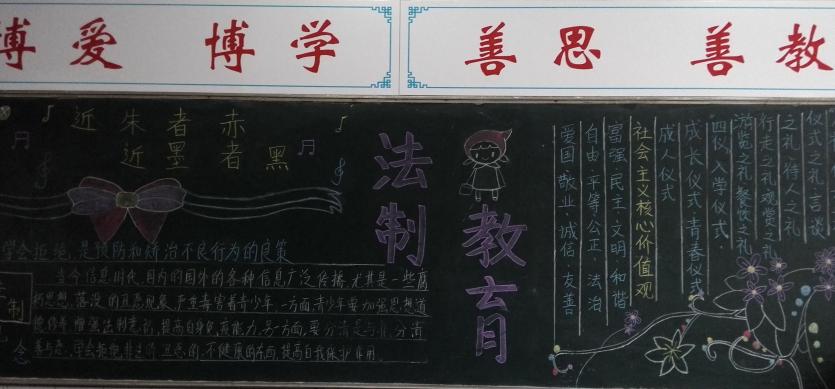 博爱 博学 善思 善教
近朱者赤
近墨者黑
法制
教育
学会拒绝,是预防和矫治不良行为的良策
当今信息时代,国内的国外的各种信息广泛传播,尤其是一些腐
朽思想、落没的丑恶现象,严重毒害着青少年,一方面青少年要加强思想道
德修养,增强法制意识,提高自身免疫能力,另一方面,要分清是与非,分清
善与恶,学会拒绝
不健康的东西,提高自我保护作用。
仪式之礼,言谈
之礼,待人之礼
行走之礼,观赏之礼
游览之礼,餐饮之礼
四仪:入学仪式,
成长仪式,青春仪式
成人仪式
社会主义核心价值观
富强·民主·文明·和谐
自由·平等·公正·法治
爱国·敬业·诚信·友善